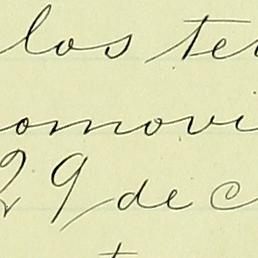 los te
omovi
29 de c